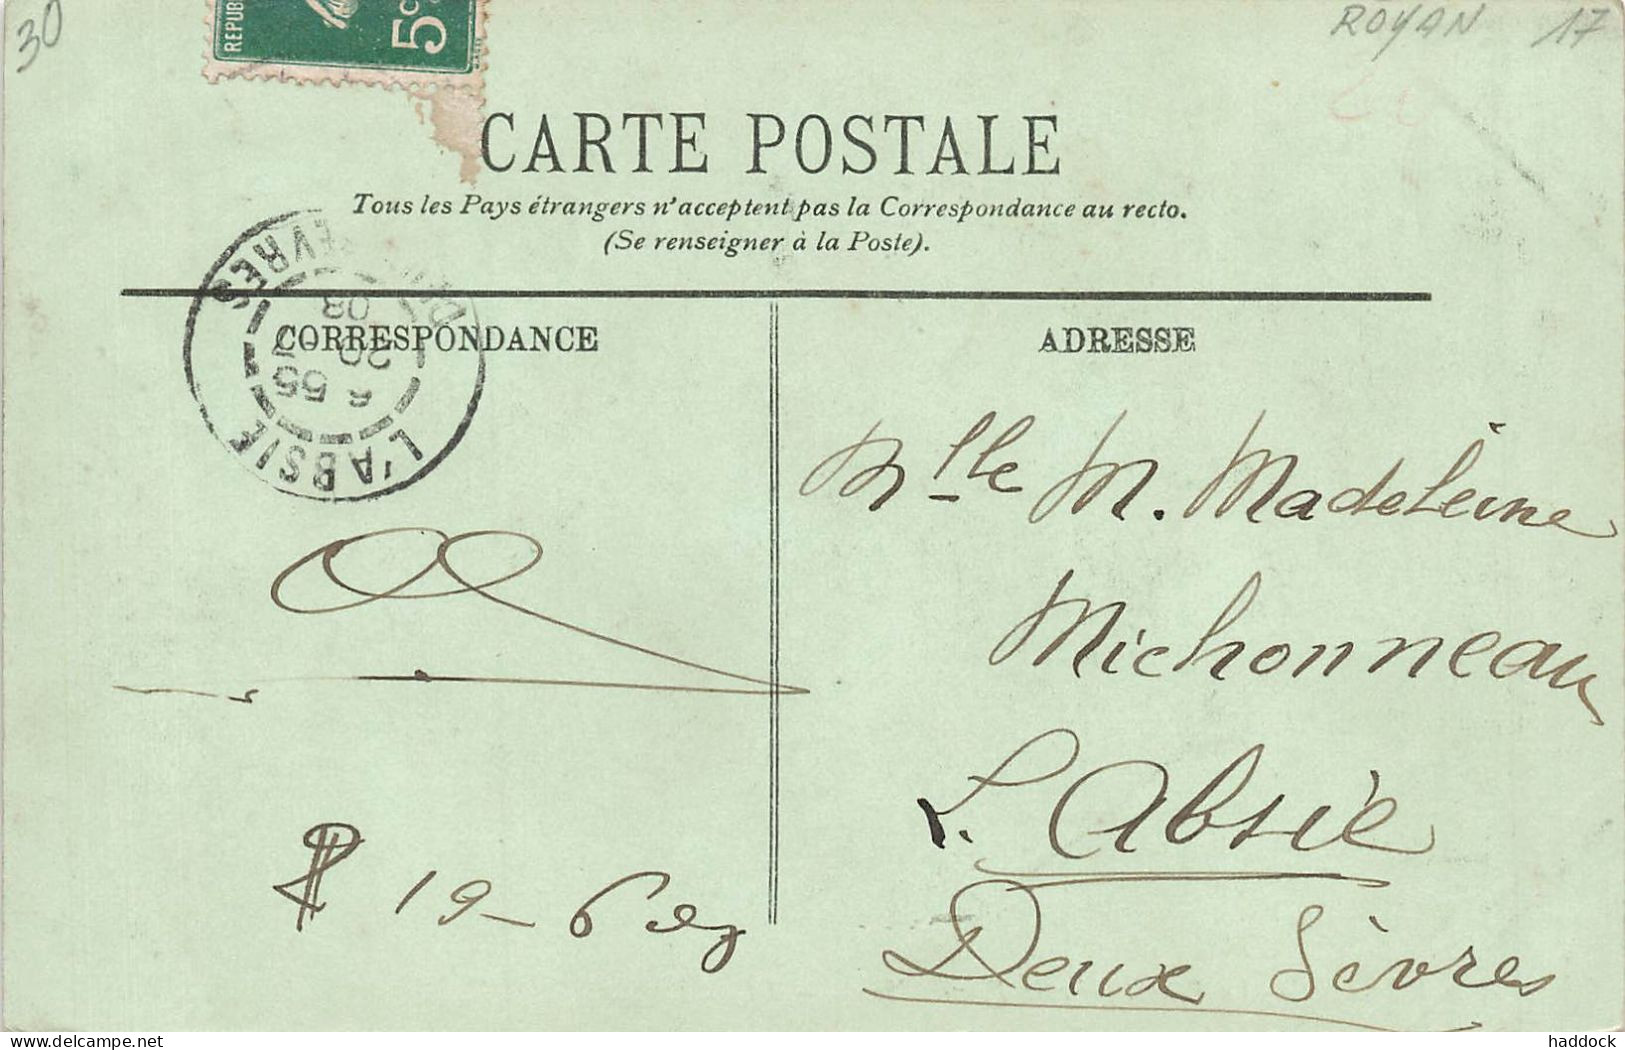 30
REPUB
5c
ROYAN 17
CARTE POSTALE
Tous les Pays étrangers n'acceptent pas la Correspondance au recto.
(Se renseigner à la Poste).
CORRESPONDANCE
ADRESSE
L'ABSIE
SEVRES
55
20
08
Mlle M. Madeleine
Michonneau
L'Absie
Deux Sèvres
19-6
delcampe.net
haddock